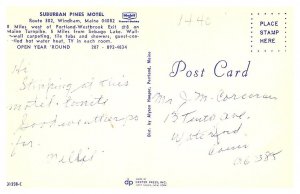 SUBURBAN PINES MOTEL
Route 302, Windham, Maine 04082
9 Miles west of Portland-Westbrook Exit #8 on
Maine Turnpike. 5 Miles from Sebago Lake. Wall-
wall carpeting, tile tubs and showers, guest-con-
trolled hot water heat, TV in each room.
OPEN YEAR 'ROUND 207 - 892-4834
1440
PLACE
STAMP
HERE
Post Card
Hi
Staying at this
motel. Units
Good weather so
far.
Millie
Mr J. M. Corcoran
Ave.
Waterford
Conn
06385
Dist. by Alyson Hooper, Portland, Maine
31398-C
dp
DEXTER PRESS, INC.